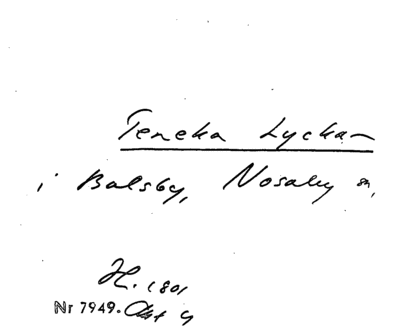 Teneka Lyckan
i Balsby, Nosaby sn,
H. 1801
Nr 7949. Akt 4